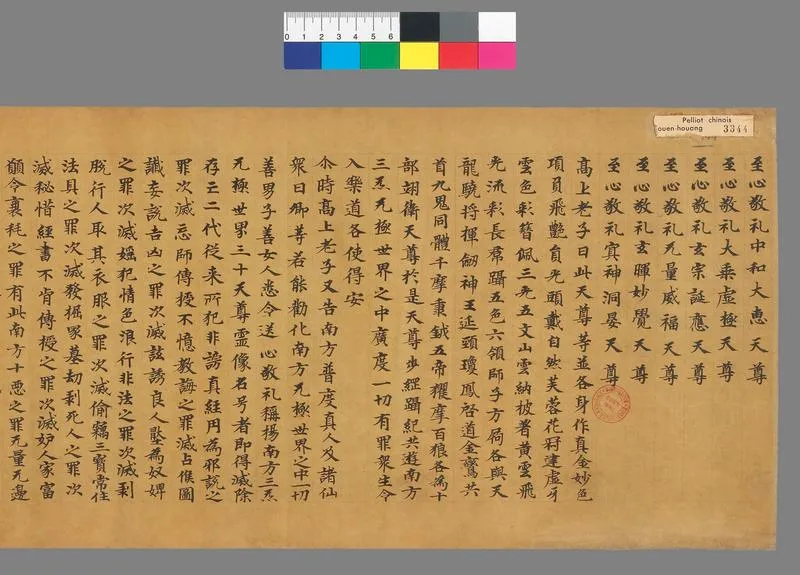 0 1 2 3 4 5 6
Pelliot chinois
ouen-houang 3344
至心敬礼中和大惠天尊
至心敬礼大乘虚極天尊
至心敬礼玄宗誕應天尊
至心敬礼无量威福天尊
至心敬礼玄暉妙覺天尊
至心敬礼寘神洞晏天尊
高上老子曰此天尊等並各身作真金妙色
項負飛艷負光頭戴自然芙蓉花冠建虚牙
雲色彩簪佩三光五文山雲納帔著黄雲飛
光流彩長帬躡五色六領師子方局各與天
龍驍将揮劒神王延頸瓊鳳啓道金鸞共
首九鬼同體千摩秉鉞五帝擢摩百狼各為十
部翊衛天尊於是天尊步經躡紀共遊南方
三炁无極世界之中廣度一切有罪衆生令
入樂道各使得安
尒時高上老子又告南方普度真人及諸仙
衆曰卿等若能勸化南方无極世界之中一切
善男子善女人悉令送心敬礼稱揚南方三炁
无極世界三十天尊靈像名号者即得滅除
存亡二代従来所犯非謗真経円為邪説之
罪次滅忘師傳授不憶教誨之罪滅占候圖
讖妄説吉凶之罪次滅詃誘良人壓為奴婢
之罪次滅婬犯情色浪行非法之罪次滅剥
脱行人取其衣服之罪次滅偷竊三寳常住
法具之罪次滅發掘冢墓劫剥死人之罪次
滅秘惜経書不肯傳授之罪次滅妒人家富
願令衰耗之罪有此南方十悪之罪无量无邊